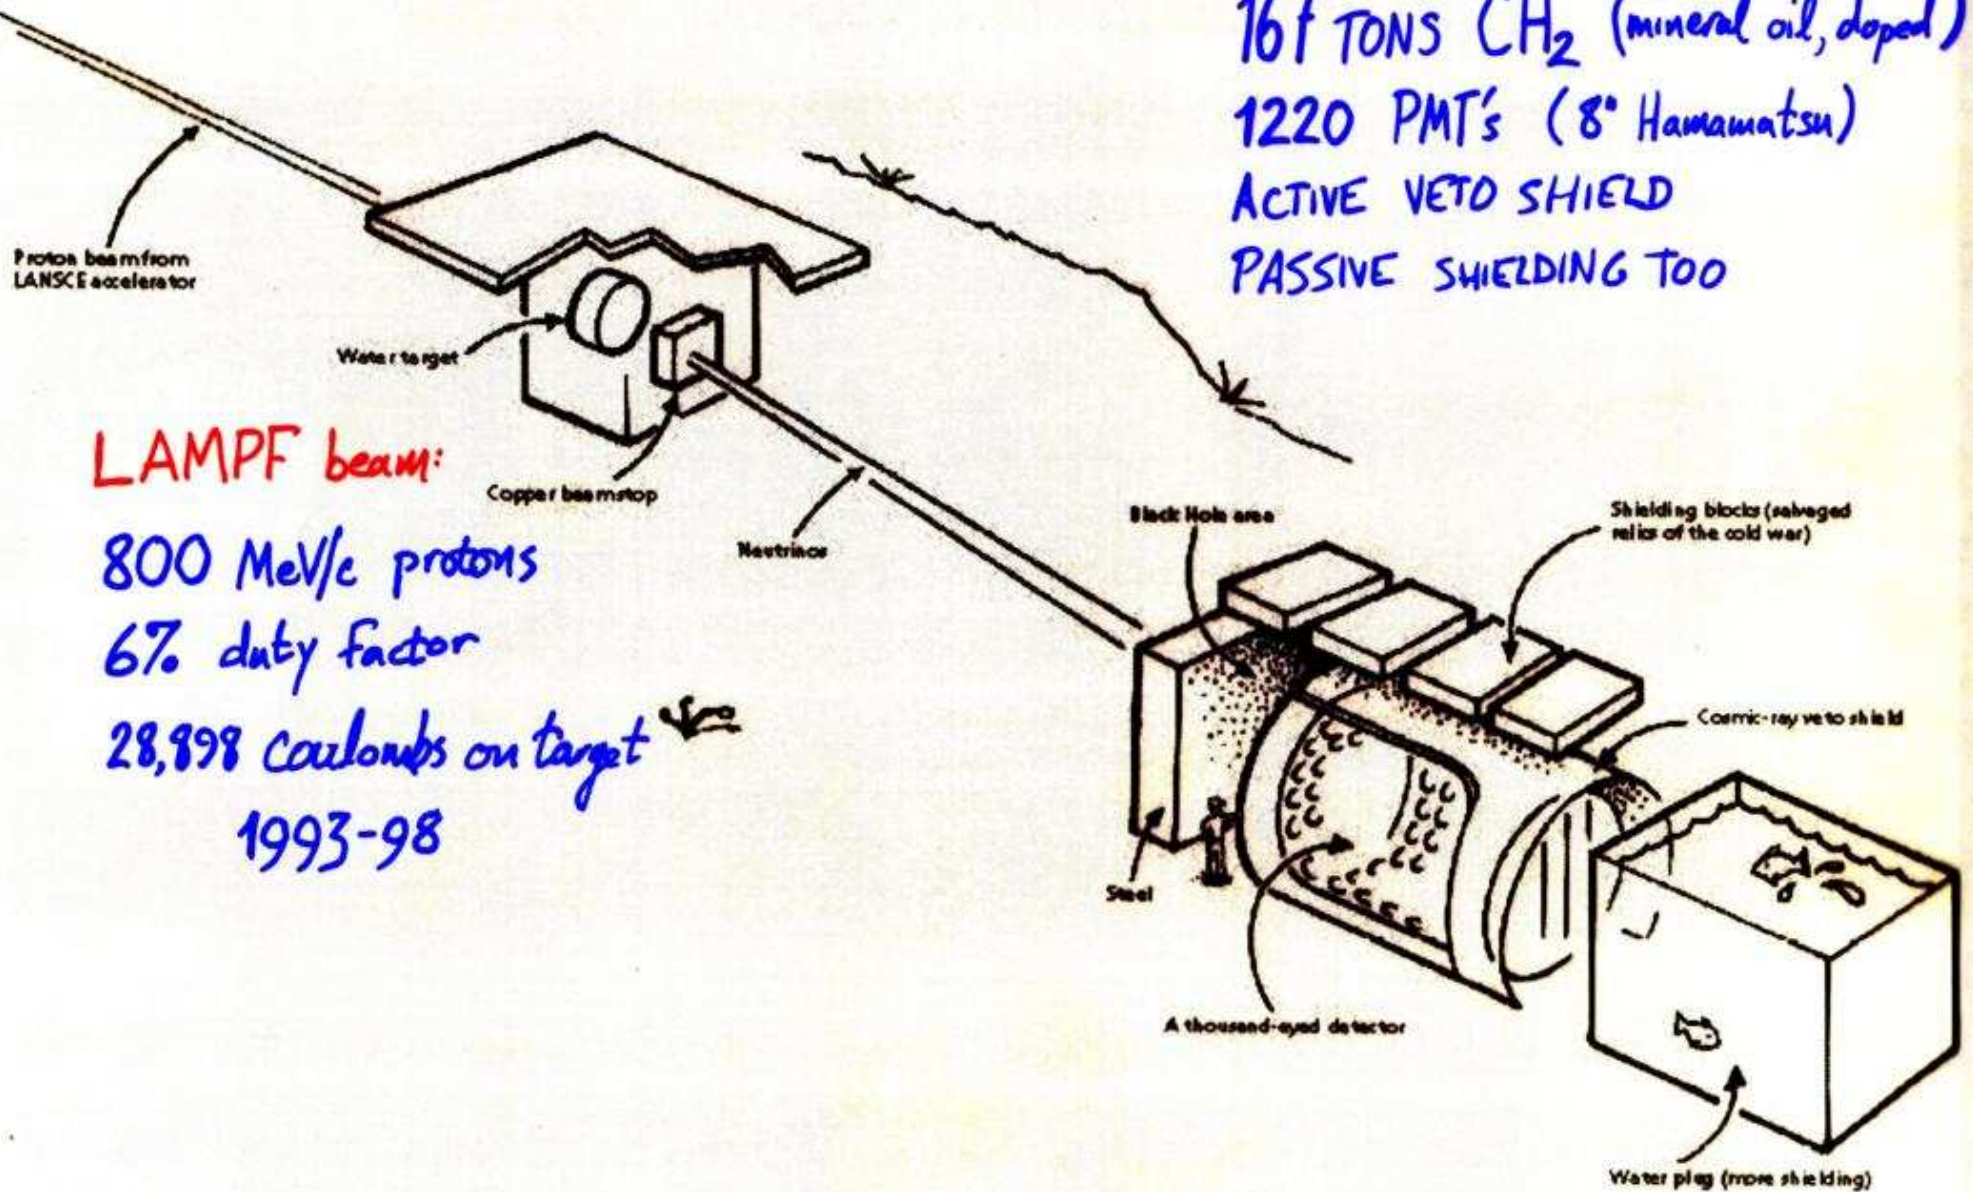 TONS CH₂ (mineral oil, doped)
1220 PMT's (8" Hamamatsu)
ACTIVE VETO SHIELD
PASSIVE SHIELDING TOO
Proton beam from
LANSCE accelerator
Water target
LAMPF beam:
800 MeV/c protons
6% duty factor
28,898 Coulombs on target
1993-98
Copper beamstop
Neutrinos
Black Hole area
Shielding blocks (salvaged
relics of the cold war)
Cosmic-ray veto shield
Steel
A thousand-eyed detector
Water plug (more shielding)